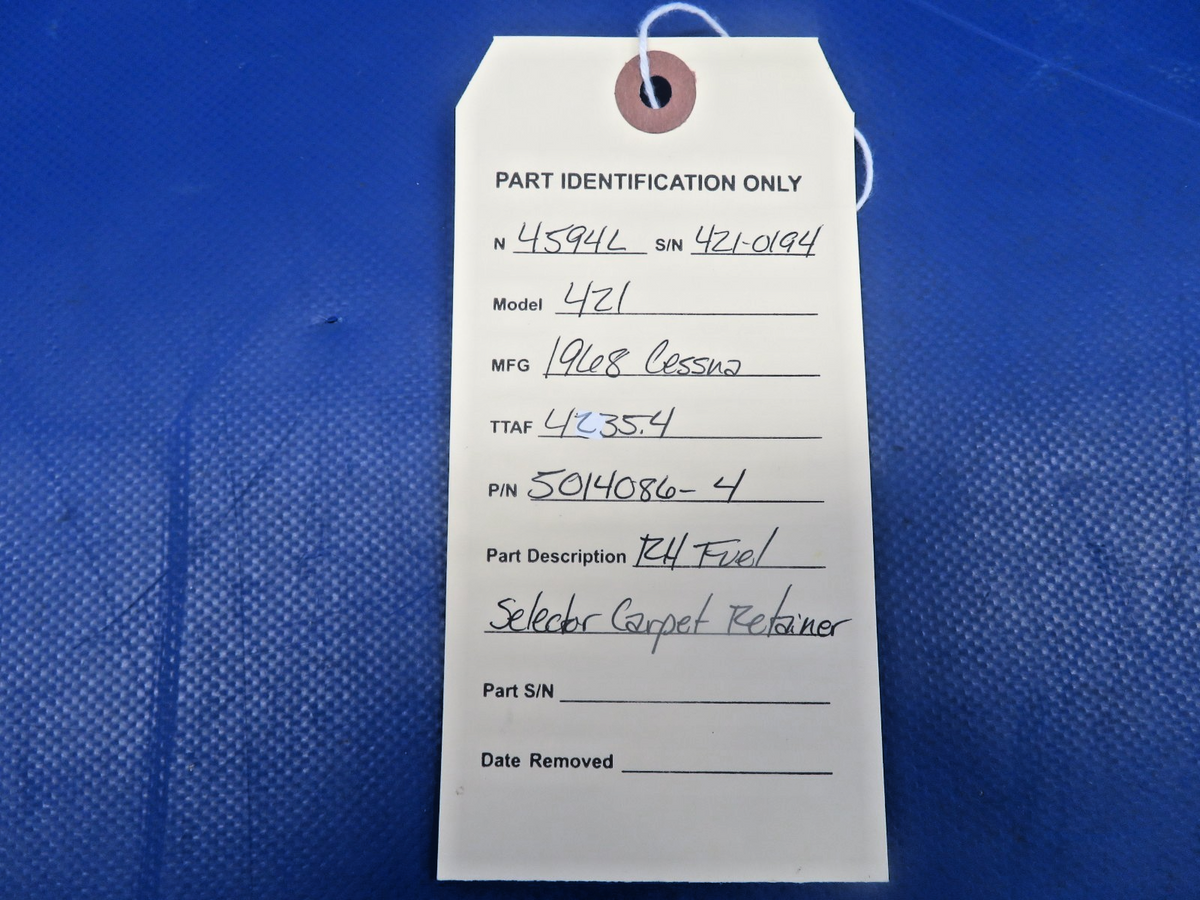 PART IDENTIFICATION ONLY
N 4594L S/N 421-0194
Model 421
MFG 1968 Cessna
TTAF 4235.4
P/N 5014086-4
Part Description RH Fuel
Selector Carpet Retainer
Part S/N
Date Removed